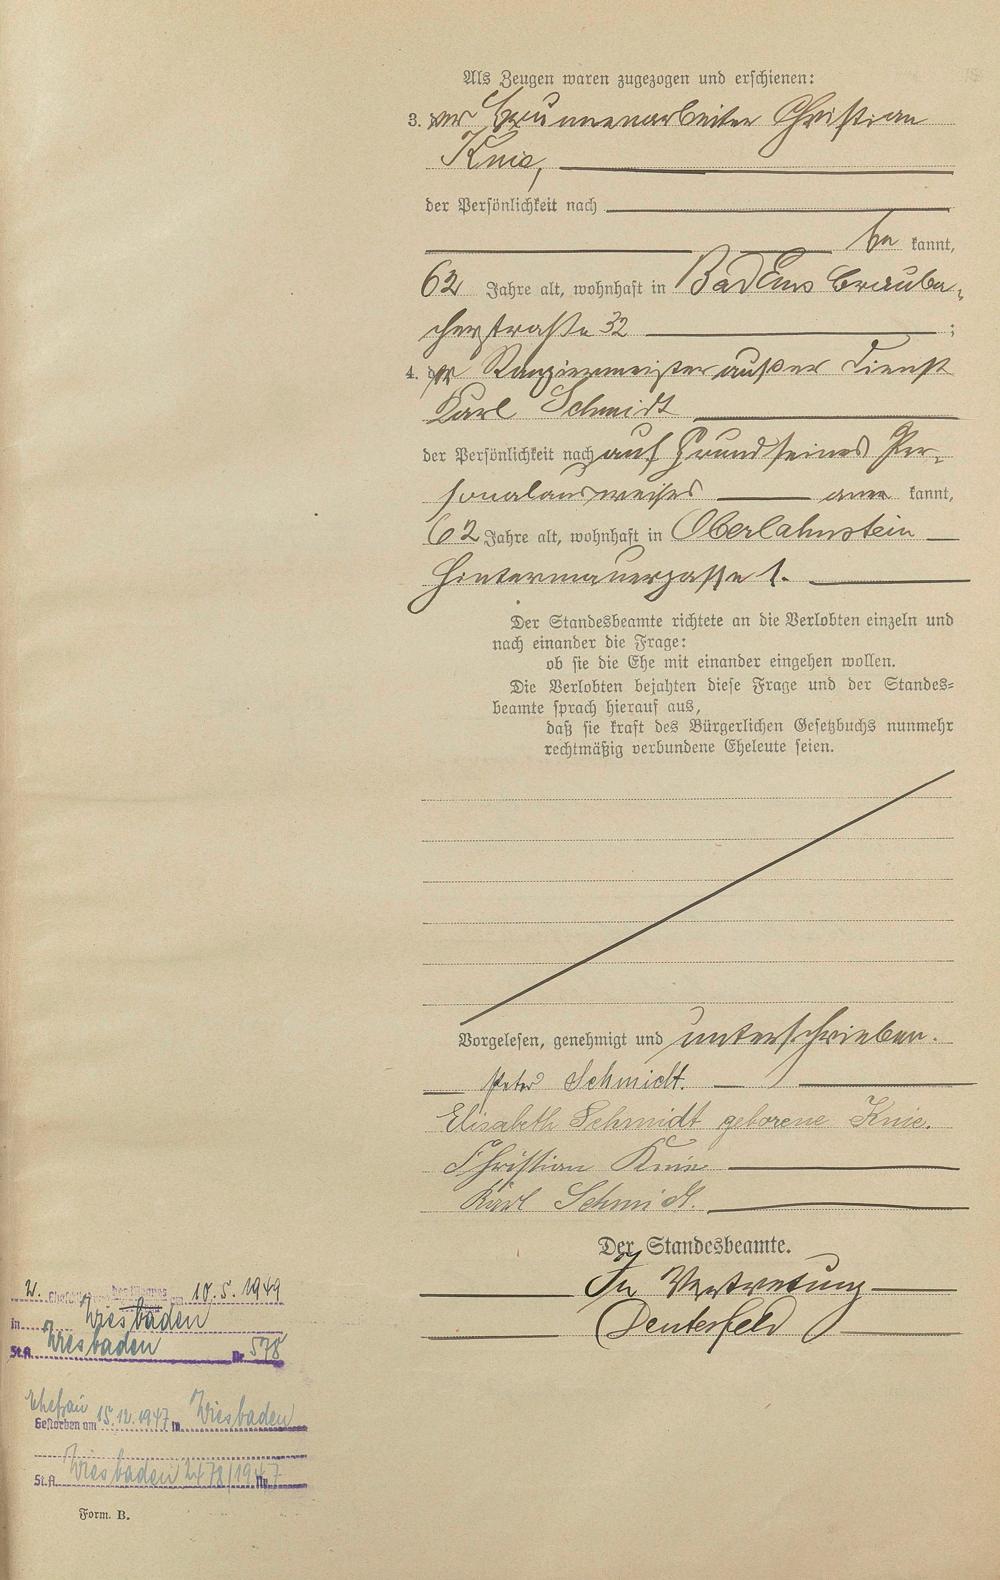 Als Zeugen waren zugezogen und erschienen:
3. der Brunnenarbeiter Christian
Knie,
der Persönlichkeit nach
be kannt,
62 Jahre alt, wohnhaft in Bad Ems Brauba-
cherstraße 32 ;
4. der Rangiermeister außer Dienst
Karl Schmidt
der Persönlichkeit nach auf Grund seines Per-
sonalausweises aner kannt,
62 Jahre alt, wohnhaft in Oberlahnstein
Hintermauergasse 1.
Der Standesbeamte richtete an die Verlobten einzeln und
nach einander die Frage:
ob sie die Ehe mit einander eingehen wollen.
Die Verlobten bejahten diese Frage und der Standes-
beamte sprach hierauf aus,
daß sie kraft des Bürgerlichen Gesetzbuchs nunmehr
rechtmäßig verbundene Eheleute seien.
Vorgelesen, genehmigt und unterschrieben.
Peter Schmidt.
Elisabeth Schmidt geborene Knie.
Christian Knie
Karl Schmidt.
Der Standesbeamte.
In Vertretung
Deuterfeld
2. Eheschl. des Mannes am 10.5.1949
in Wiesbaden
St.A. Wiesbaden Nr 578
Ehefrau
Gestorben am 15.12.1947 in Wiesbaden
St.A. Wiesbaden 2478/1947 Nr.
Form. B.